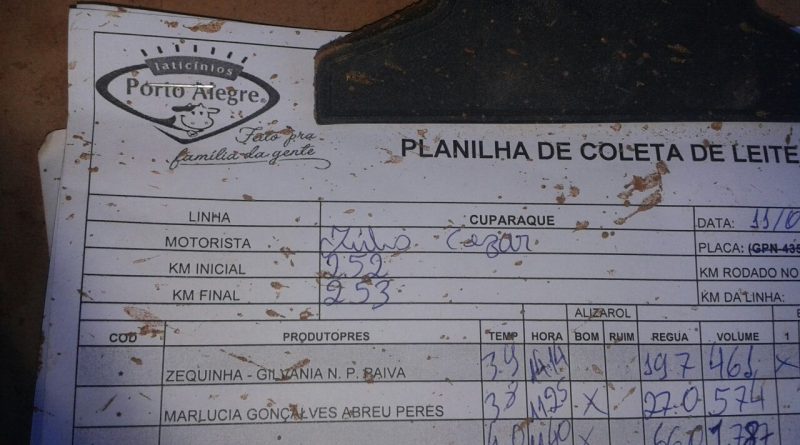 laticínios
Porto Alegre®
Feito pra
família da gente
PLANILHA DE COLETA DE LEITE
LINHA CUPARAQUE DATA: 11/0
MOTORISTA Júlio Cezar PLACA: (GPN-435
KM INICIAL 252 KM RODADO NO
KM FINAL 253 KM DA LINHA:
ALIZAROL
COD PRODUTOPRES TEMP HORA BOM RUIM REGUA VOLUME 1
ZEQUINHA - GILVANIA N. P. PAIVA 3.9 197 461 X
MARLUCIA GONÇALVES ABREU PERES 38 1125 X 27.0 574
40 X 66.0 1787